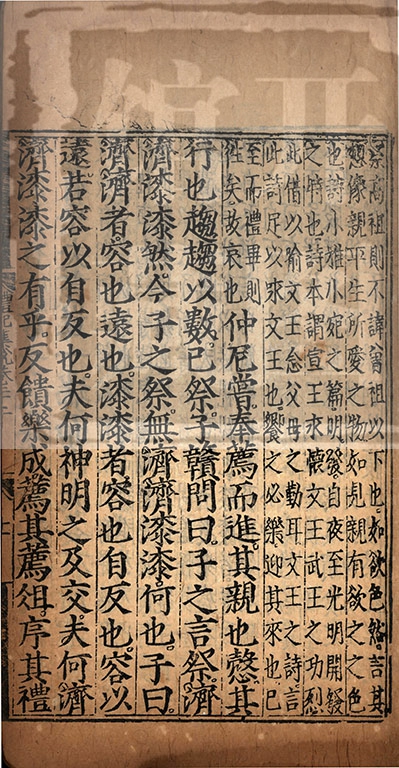 祭高祖則不諱曾祖以下也。如欲色然。言其
想像親平生所愛之物。如見親有欲之之色
也。詩小雅小宛之篇。明發。自夜至光明開發
之時也。詩本謂宣王永懷文王武王之功烈
此借以喻文王念父母之勤耳。文王之詩言
此詩足以來文王也。饗之必樂。迎其來也。已
至而禮畢則
往矣。故哀也
仲尼嘗。奉薦而進。其親也愨。其
行也趨趨以數。已祭。子贛問曰。子之言祭。濟
濟漆漆然。今子之祭。無濟濟漆漆。何也。子曰
濟濟者。容也遠也。漆漆者。容也自反也。容以
遠。若容以自反也。夫何神明之及交。夫何濟
濟漆漆之有乎。反饋樂成。薦其薦俎。序其禮